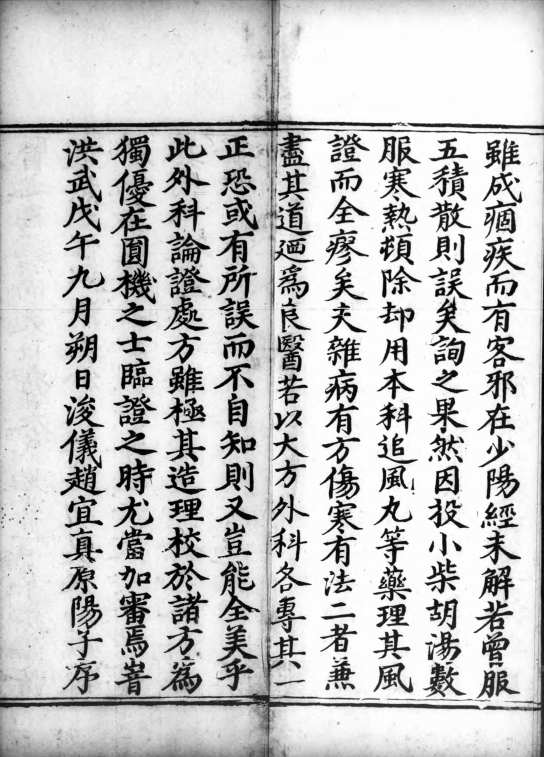 雖成痼疾而有客邪在少陽經未解若曾服
五積散則誤矣詢之果然因投小柴胡湯數
服寒熱頓除却用本科追風丸等藥理其風
證而全瘳矣夫雜病有方傷寒有法二者兼
盡其道廼爲良醫若以大方外科各專其一
正恐或有所誤而不自知則又豈能全美乎
此外科論證處方雖極其造理校於諸方爲
獨優在圓機之士臨證之時尤當加審焉旹
洪武戊午九月朔日浚儀趙宜真原陽子序